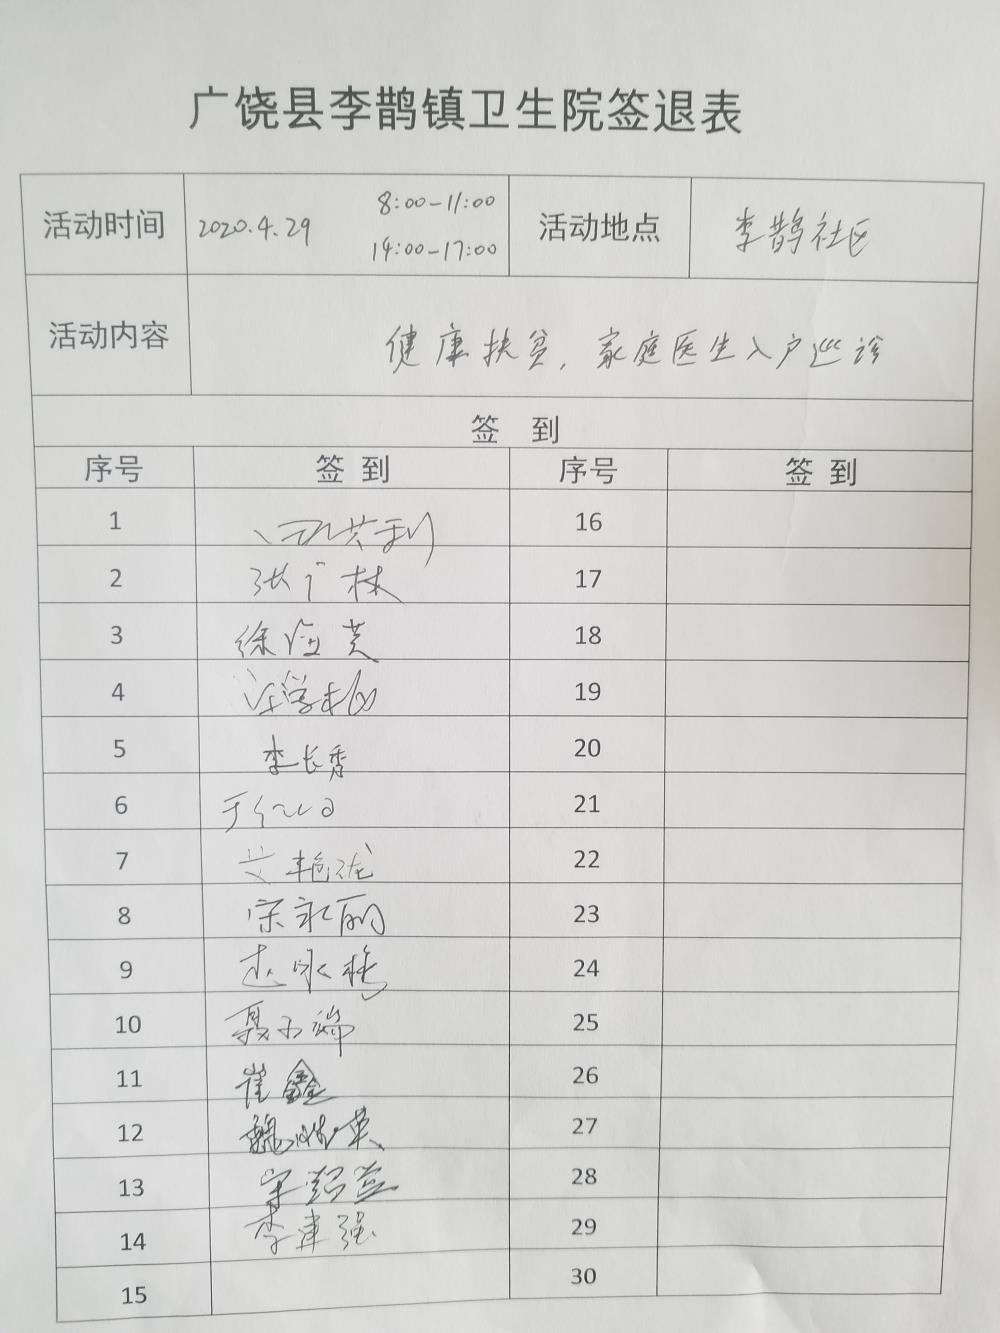 广饶县李鹊镇卫生院签退表
活动时间 2020.4.29 8:00-11:00 14:00-17:00 活动地点 李鹊社区
活动内容 健康扶贫,家庭医生入户巡诊
签 到
序号 签 到 序号 签 到
1 16
2 张广林 17
3 徐海芙 18
4 19
5 李长香 20
6 21
7 22
8 宗永丽 23
9 24
10 25
11 崔鑫 26
12 27
13 28
14 李军强 29
15 30